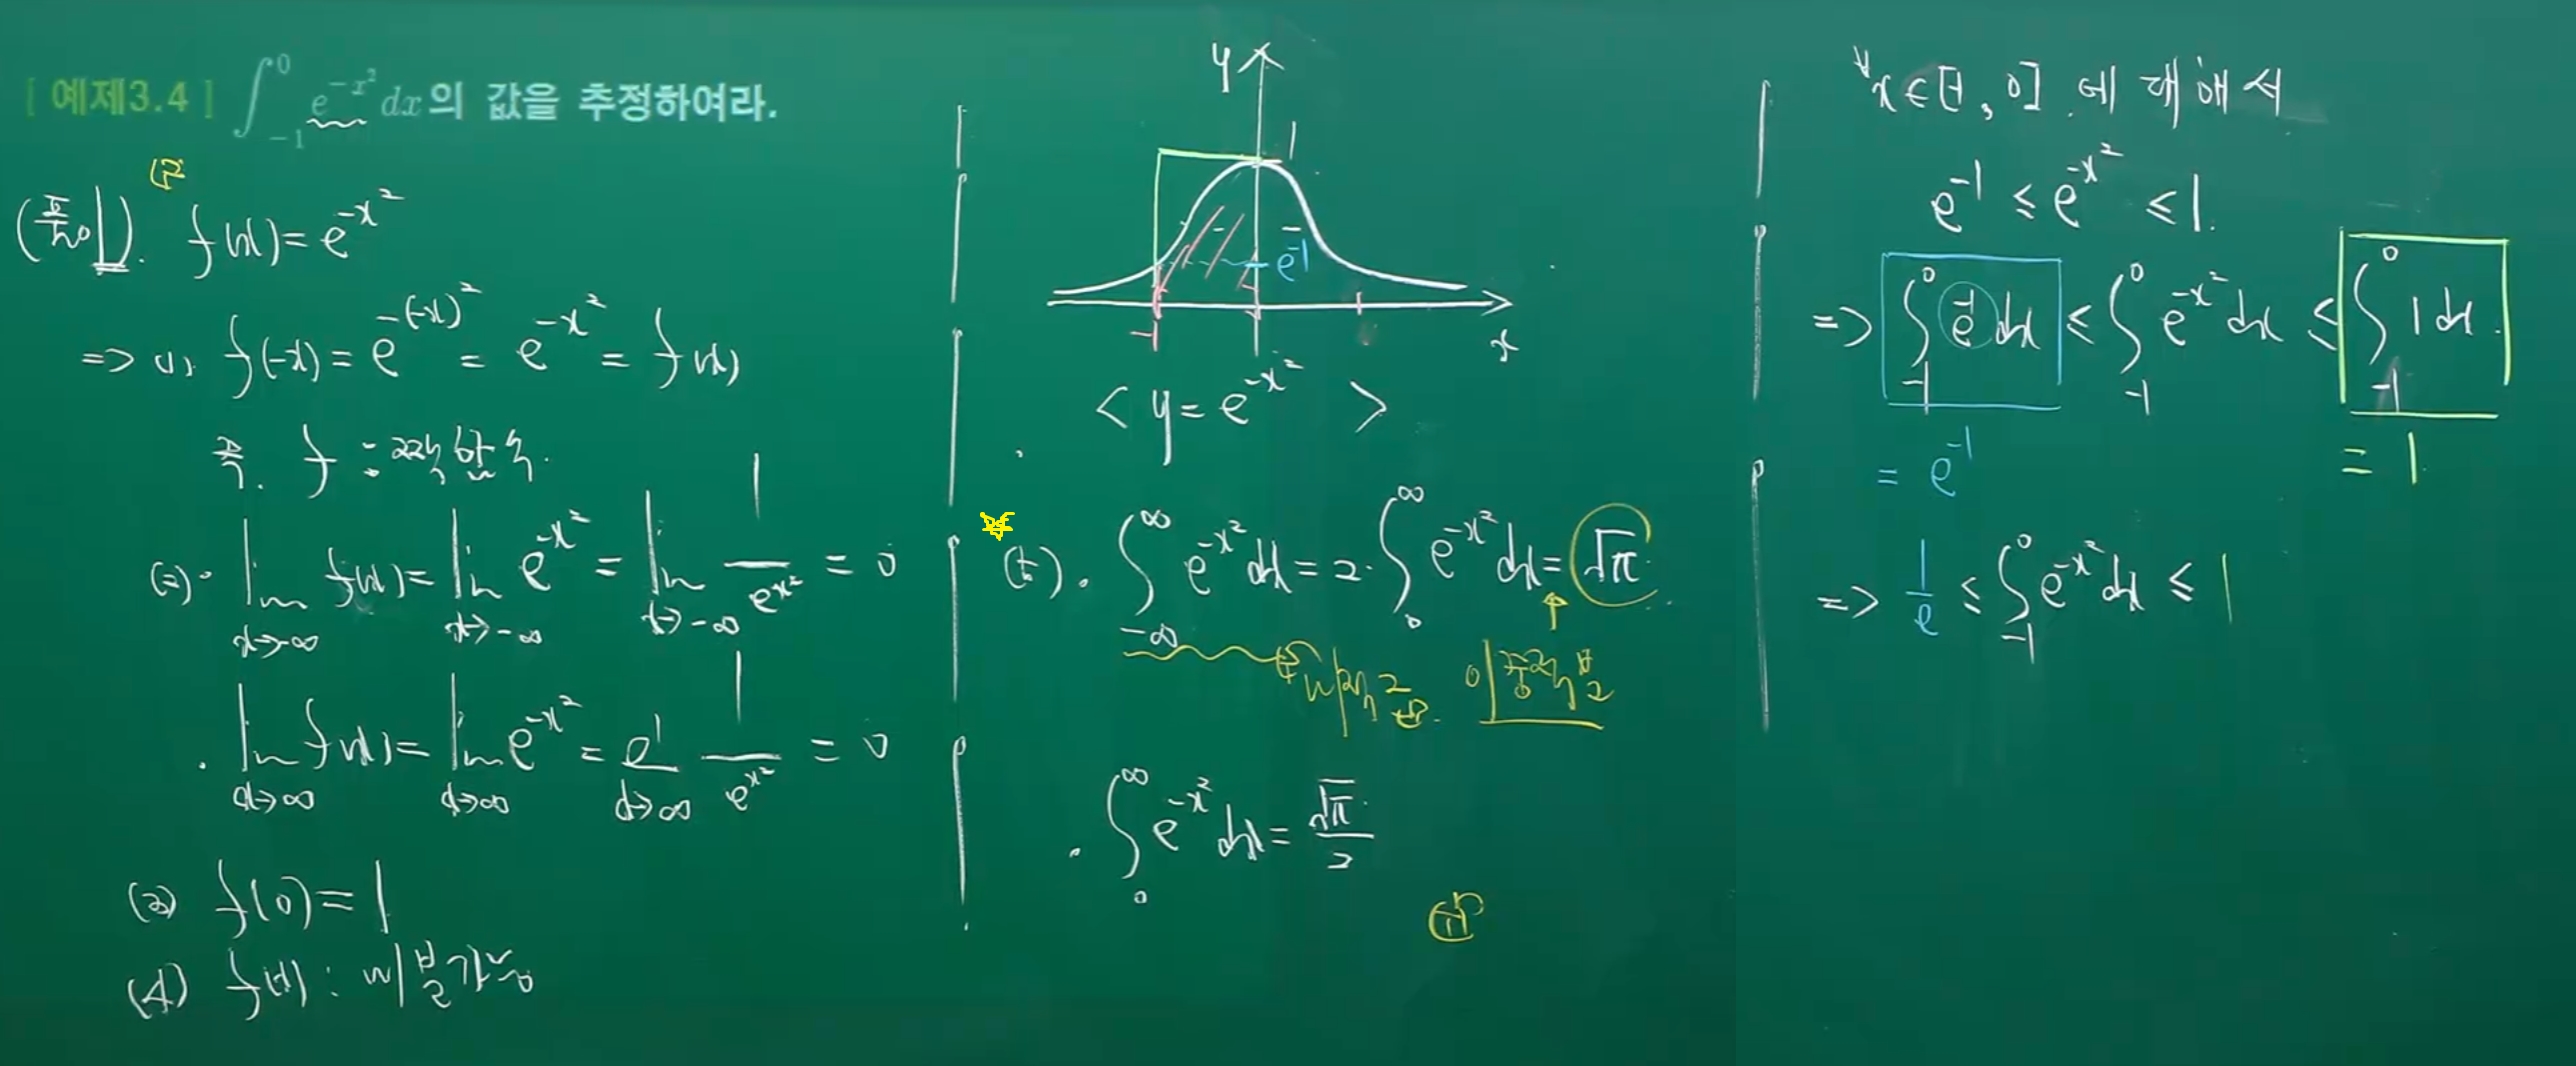 [ 예제3.4 ] ∫_{-1}^{0} e^{-x²} dx의 값을 추정하여라.
(풀이). f(x) = e^{-x²}
=> (1). f(-x) = e^{-(-x)²} = e^{-x²} = f(x)
즉. f : 우함수.
(2). lim_{x→-∞} f(x) = lim_{x→-∞} e^{-x²} = lim_{x→-∞} 1/e^{x²} = 0
· lim_{x→∞} f(x) = lim_{x→∞} e^{-x²} = lim_{x→∞} 1/e^{x²} = 0
(3) f(0) = 1
(4) f(x) : 미분가능
y
1
e^{-1}
-1
x
< y = e^{-x²} >
∫_{-∞}^{∞} e^{-x²} dx = 2·∫_{0}^{∞} e^{-x²} dx = √π
이중적분
· ∫_{0}^{∞} e^{-x²} dx = √π/2
∀x ∈ [-1, 0] 에 대해서
e^{-1} ≤ e^{-x²} ≤ 1.
=> ∫_{-1}^{0} e^{-1} dx ≤ ∫_{-1}^{0} e^{-x²} dx ≤ ∫_{-1}^{0} 1 dx.
= e^{-1} = 1
=> 1/e ≤ ∫_{-1}^{0} e^{-x²} dx ≤ 1